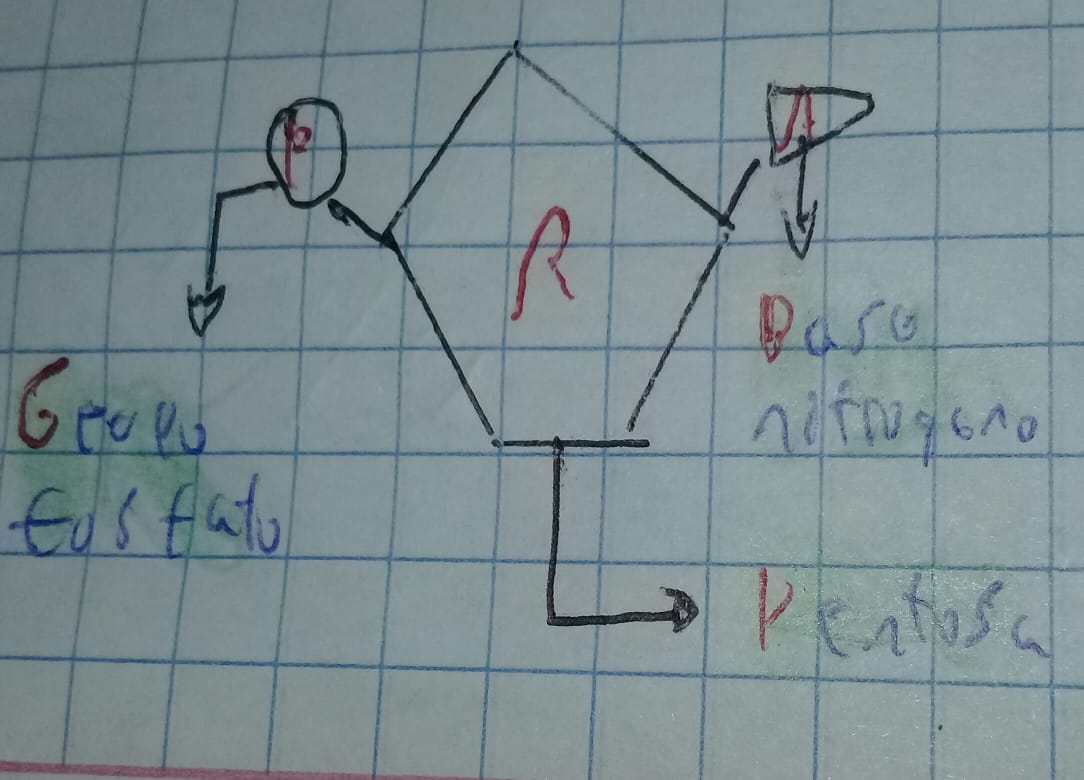 P
A
R
Grupo
fosfato
Base
nitrogeno
Pentosa